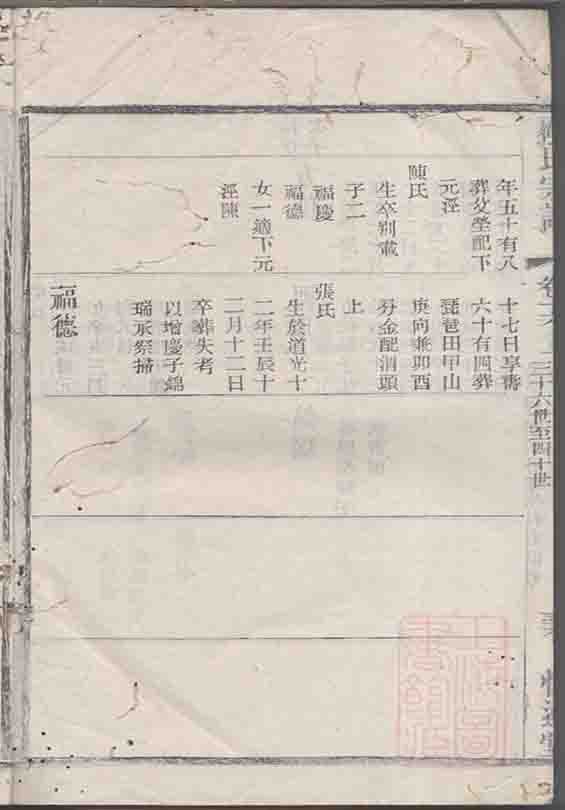 年五十有八
葬父塋配下
元涇
陳氏
生卒別載
子二
福慶
福德
女一適下元
涇陳
十七日享壽
六十有四葬
琵琶田甲山
庚向兼卯酉
分金配涓頭
上
張氏
生於道光十
二年壬辰十
二月十二日
卒葬失考
以增慶子錦
瑞承祭掃
福德
三十六世至四十世